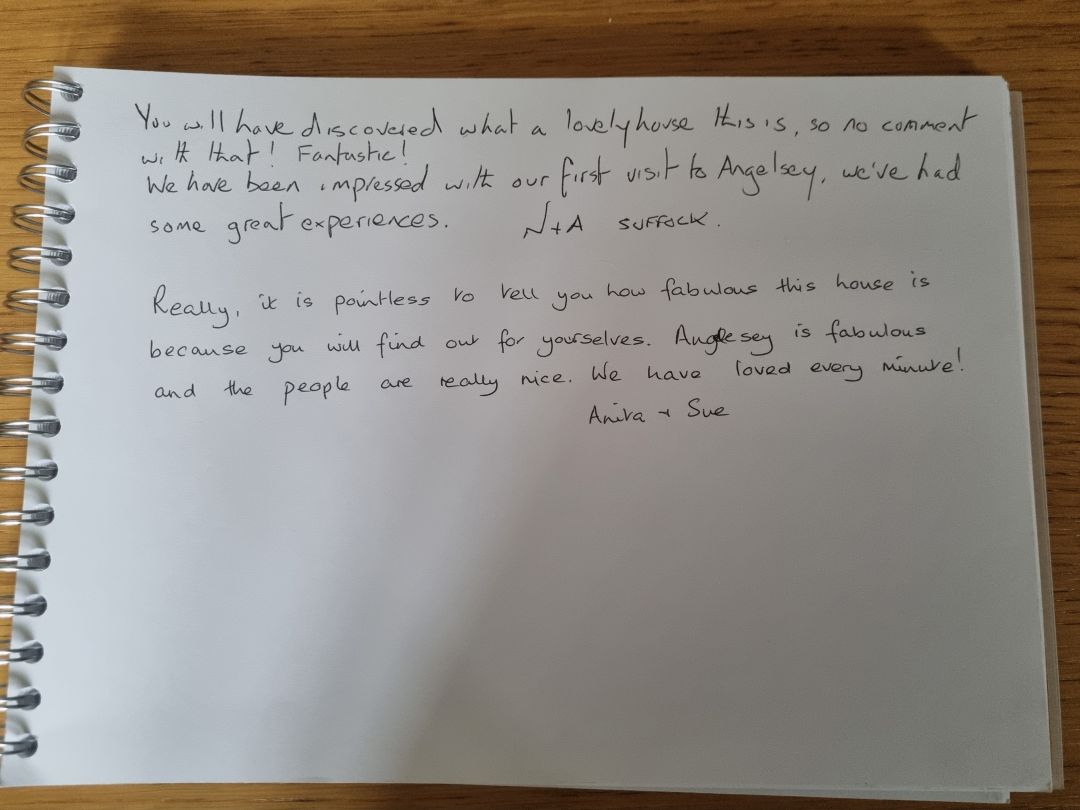 You will have discovered what a lovely house this is, so no comment
with that! Fantastic!
We have been impressed with our first visit to Angelsey, we've had
some great experiences. N+A SUFFOCK.
Really, it is pointless to tell you how fabulous this house is
because you will find out for yourselves. Anglesey is fabulous
and the people are really nice. We have loved every minute!
Anita + Sue